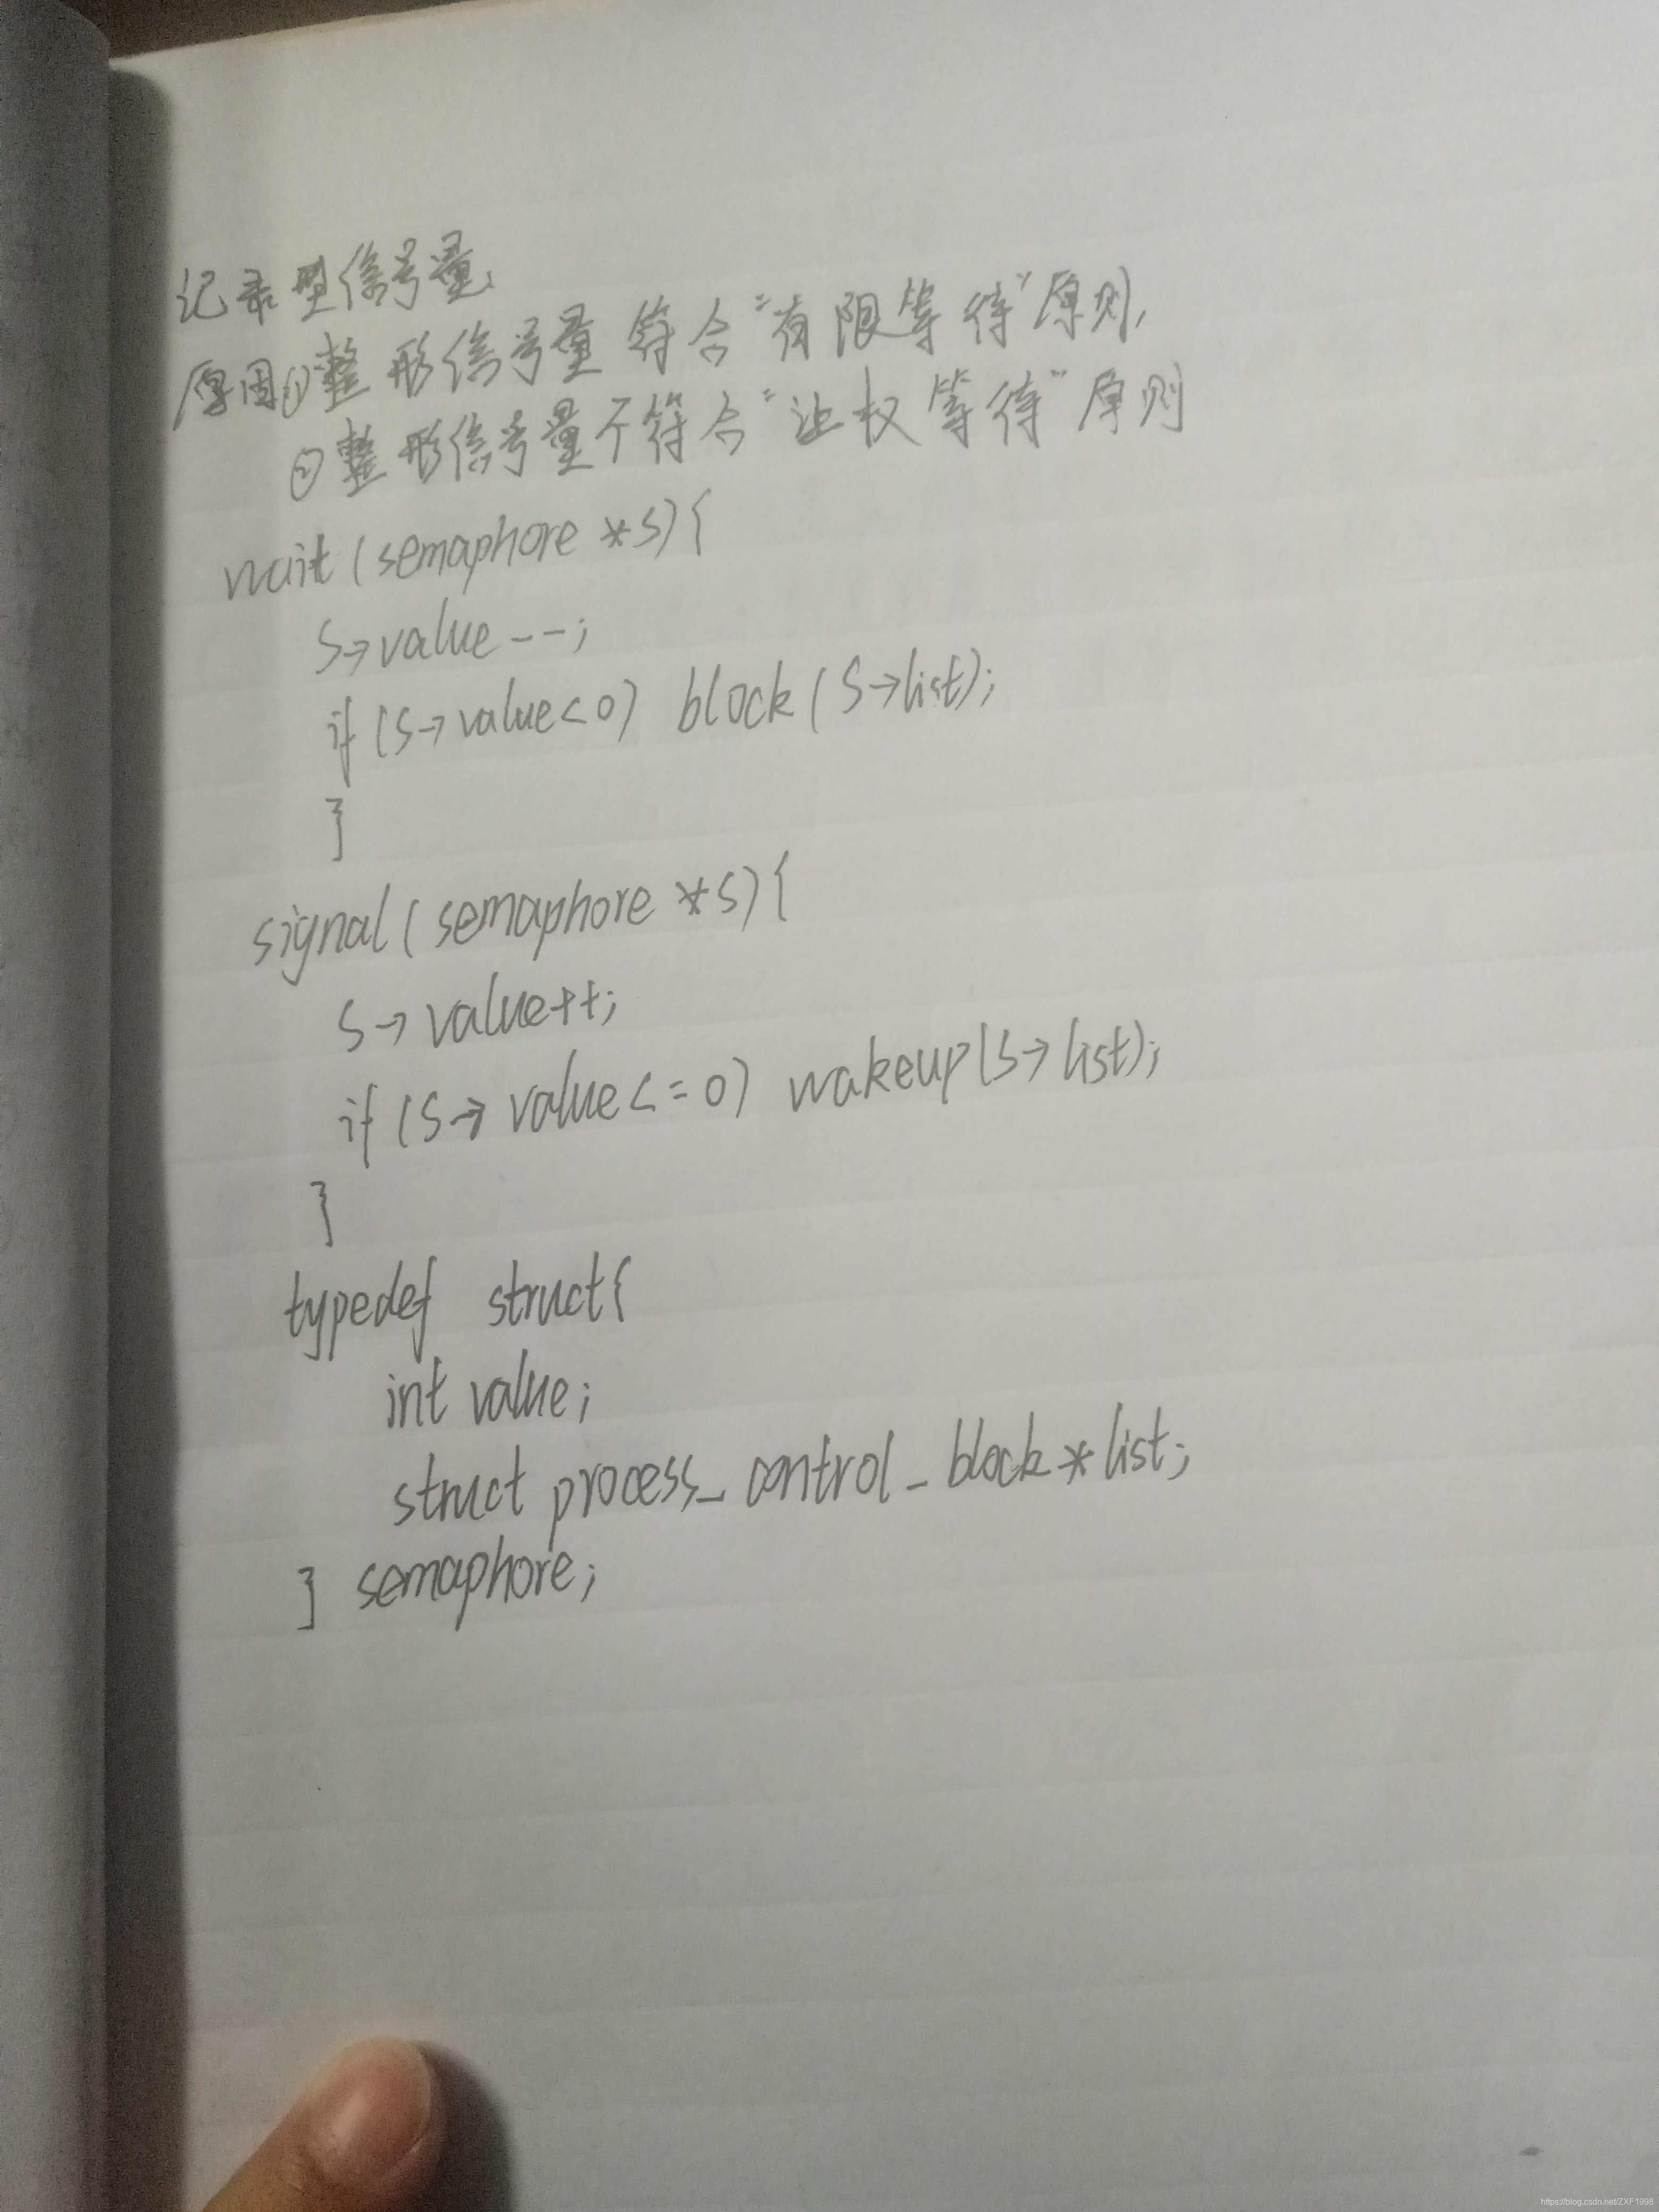 记录型信号量
原因①整形信号量 符合"有限等待"原则,
②整形信号量不符合"让权等待"原则
wait(semaphore *s){
S→value--;
if(S→value<0) block(S→list);
}
signal(semaphore *s){
S→value++;
if(S→value<=0) wakeup(S→list);
}
typedef struct{
int value;
struct process_control_block*list;
} semaphore;
https://blog.csdn.net/ZXF1998